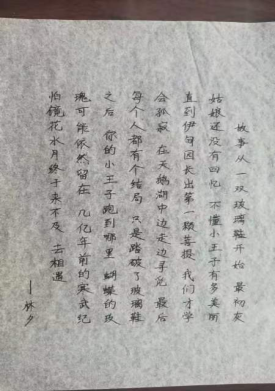 故事从一双玻璃鞋开始 最初灰
姑娘还没有回忆 不懂小王子有多美丽
直到伊甸园长出第一颗菩提 我们才学
会孤寂 在天鹅湖中边走边寻觅 最后
每个人都有个结局 只是踏破了玻璃鞋
之后 你的小王子跑到哪里 蝴蝶的玫
瑰可能依然留在 几亿年前的寒武纪
怕镜花水月终于来不及 去相遇
——林夕